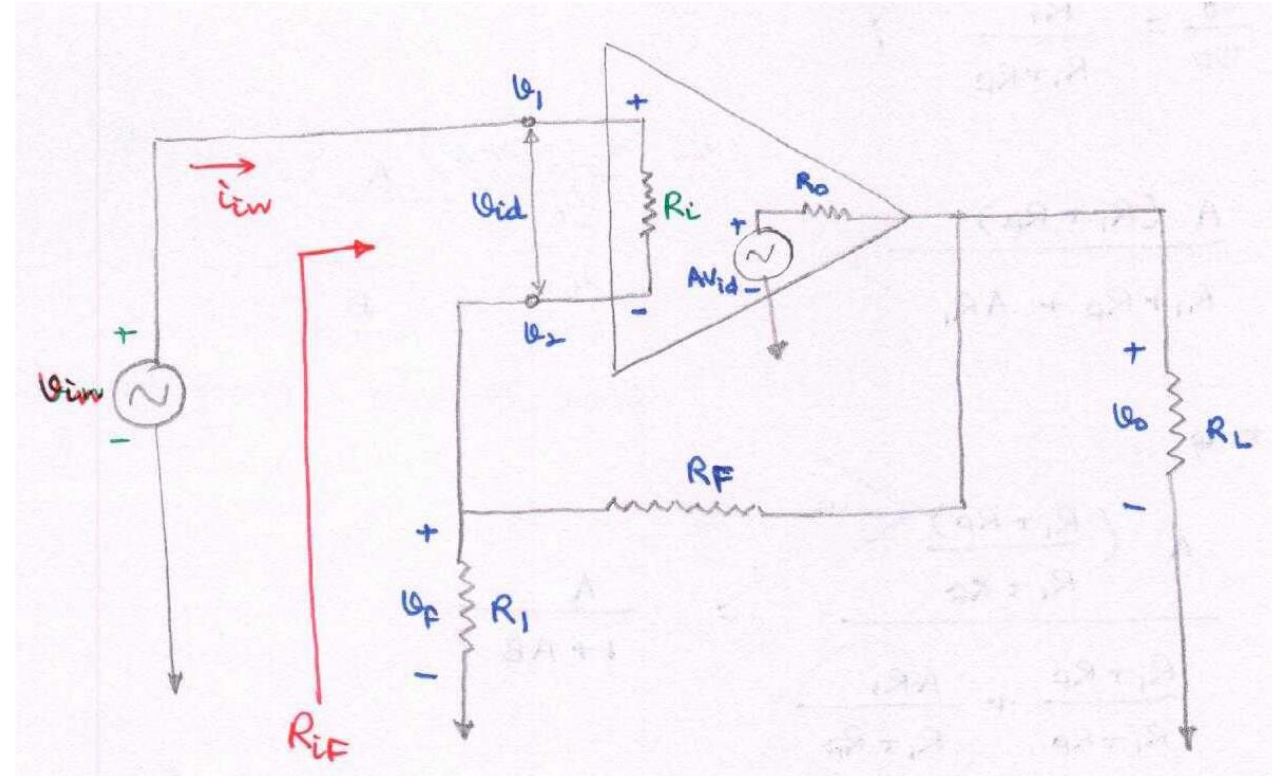 v₁
+
i_in
v_id
R_i
R_o
+
A v_id -
-
v₂
+
v_in
-
+
v_o
R_L
-
R_F
+
v_F
R₁
-
R_iF